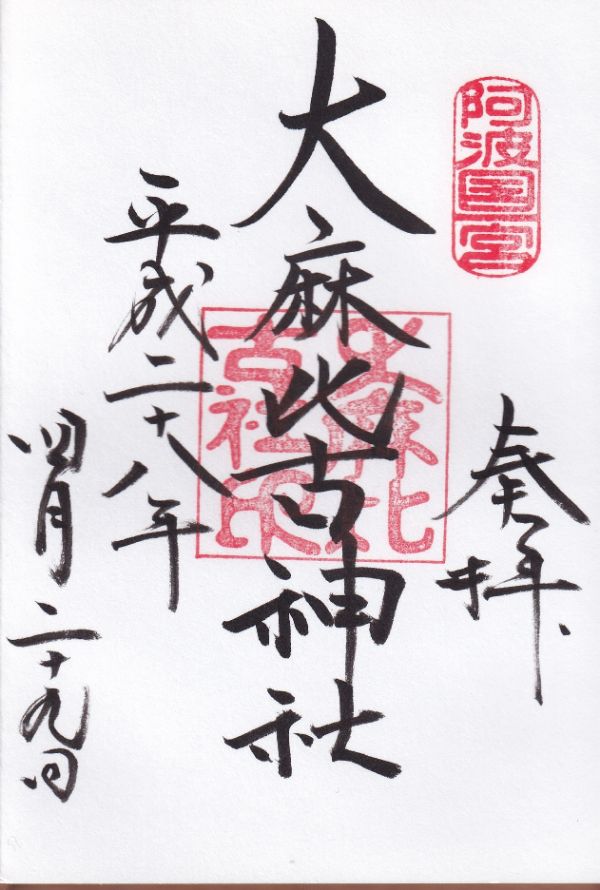 阿波国一宮
奉拝
大麻比古神社
大麻比
古社印
平成二十八年
四月二十九日